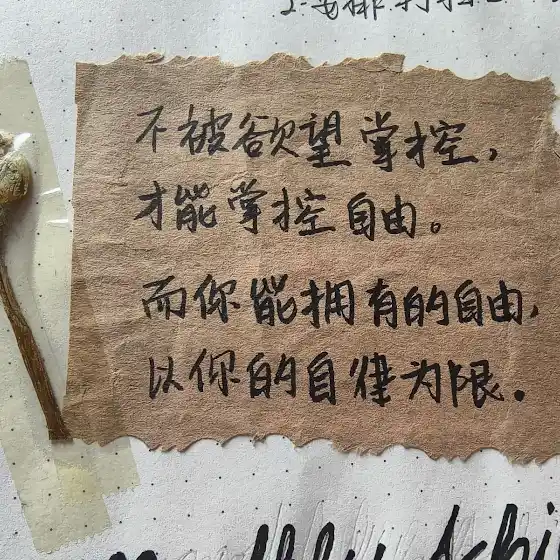 不被欲望掌控，
才能掌控自由。
而你能拥有的自由，
以你的自律为限.